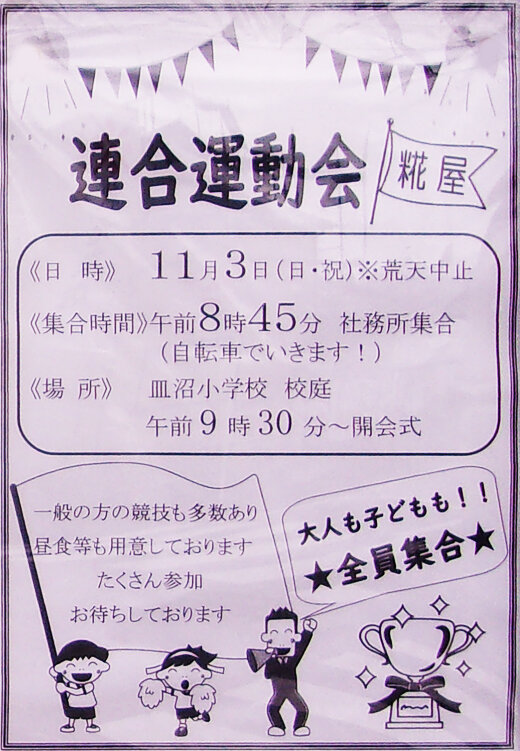 連合運動会
糀屋
《日 時》 11月3日(日・祝)※荒天中止
《集合時間》午前8時45分 社務所集合
(自転車でいきます!)
《場 所》 皿沼小学校 校庭
午前9時30分～開会式
一般の方の競技も多数あり
昼食等も用意しております
たくさん参加
お待ちしております
大人も子どもも!!
★全員集合★